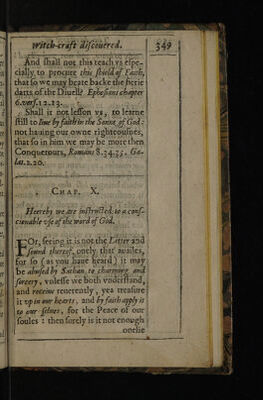 Witch-craft discovered. 349
And shall not this teach vs espe-
cially to procure this shield of Faith,
that so we may beate backe the fierie
darts of the Divell? Ephesians chapter
6. vers. 12.13.
Shall it not lesson vs, to learne
still to liue by faith in the Sonne of God:
not hauing our owne righteousnes,
that so in him we may be more then
Conquerours, Romans 8.34.35. Ga-
lat. 2.20.
CHAP. X.
Hereby we are instructed to a consc-
cionable vse of the word of God.
FOr, seeing it is not the Letter and
sound thereof, onely that availes,
for so (as you haue heard) it may
be abused by Sathan to charming and
sorcery, vnlesse we both vnderstand,
and receiue reuerently, yea treasure
it vp in our hearts, and by faith apply it
to our selues, for the Peace of our
soules: then surely is it not enough
onelie